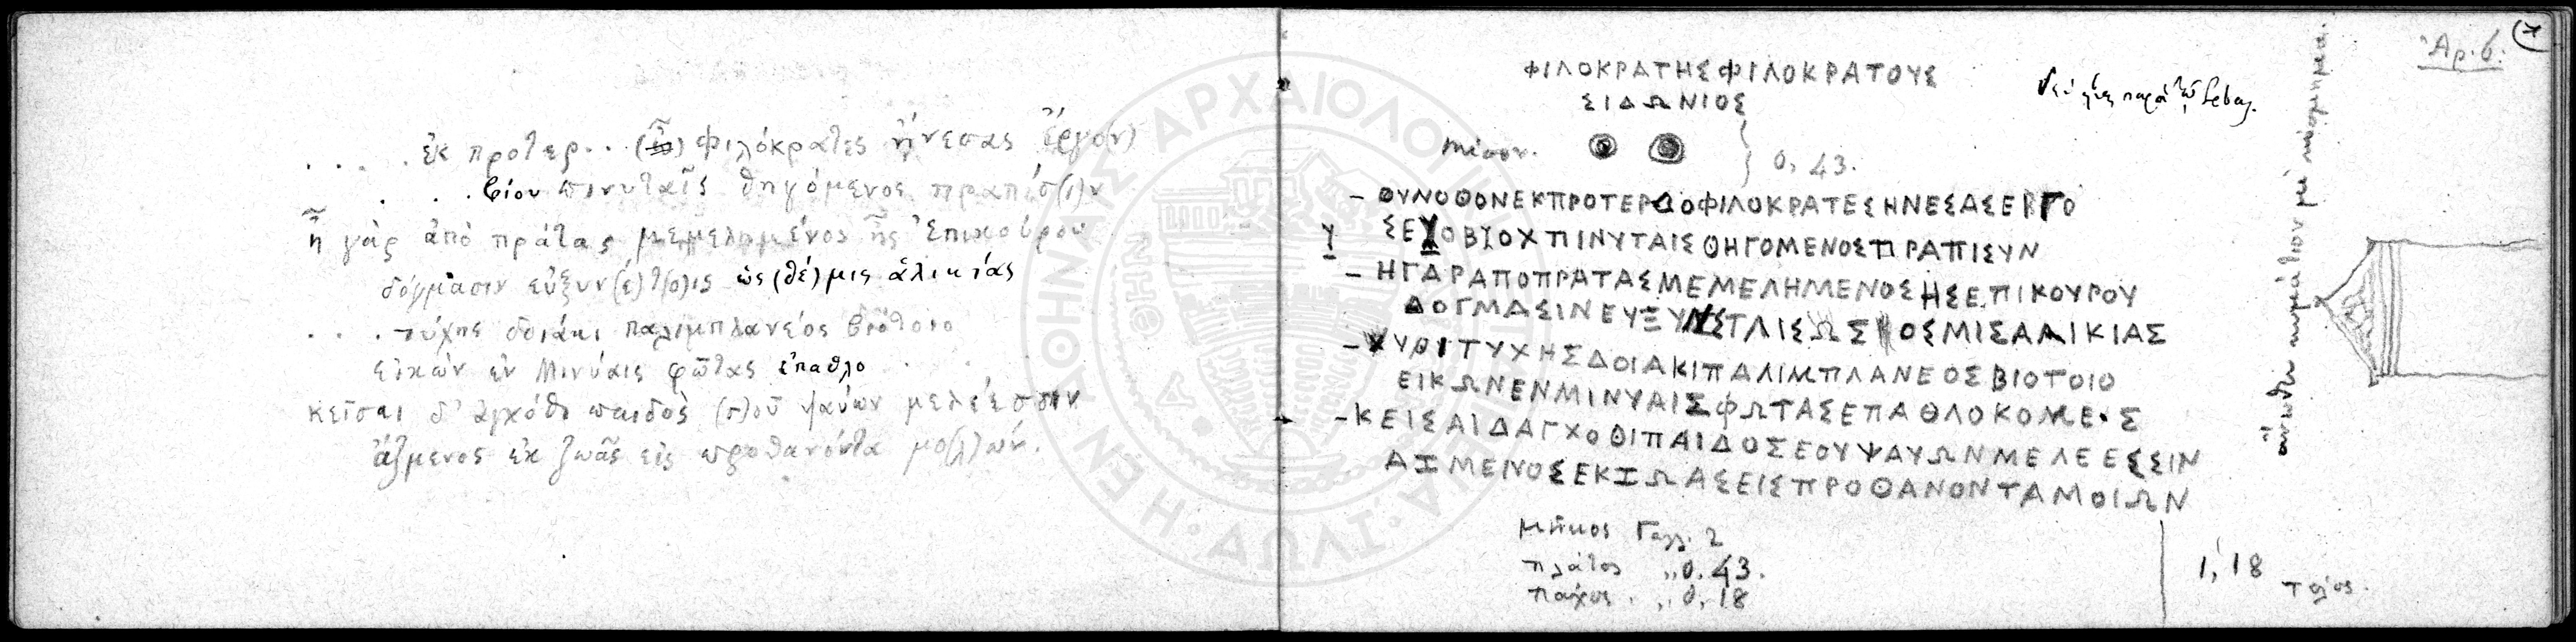 . . . . ἐκ προτερ . . (ὦ) Φιλόκρατες ᾔνεσας ἔργο(ν)
. . . βίου πινυταῖς θηγόμενος πραπίσ(ι)ν
ἦ γὰρ ἀπὸ πράτας μεμελημένος ἦς Ἐπικούρου
δόγμασιν εὐξυν(έ)τ(ο)ις ὡς (θέ)μις ἁλικίας
. . . τύχης δοιάκι παλιμπλανέος βιότοιο
εἰκὼν ἐν Μινύαις φῶτας ἐπαθλο . .
κεῖσαι δ' ἀγχόθι παιδὸς (σ)οῦ ψαύων μελέεσσιν
ἅζμενος ἐκ ζωᾶς εἰς προθανόντα μο(λ)ών.
Ἀρ. 6.
ΦΙΛΟΚΡΑΤΗΣΦΙΛΟΚΡΑΤΟΥΣ
ΣΙΔΩΝΙΟΣ
0,43.
- ΟΥΝΟΘΟΝΕΚΠΡΟΤΕΡΔΟΦΙΛΟΚΡΑΤΕΣΗΝΕΣΑΣΕΡΓΟ
Υ ΣΕΥΟΒΙΟΧΠΙΝΥΤΑΙΣΘΗΓΟΜΕΝΟΣΠΡΑΠΙΣΥΝ
- ΗΓΑΡΑΠΟΠΡΑΤΑΣΜΕΜΕΛΗΜΕΝΟΣΗΣΕΠΙΚΟΥΡΟΥ
ΔΟΓΜΑΣΙΝΕΥΞΥΝΣΤΛΙΣΩΣΟΣΜΙΣΑΛΙΚΙΑΣ
- ΧΥΡΙΤΥΧΗΣΔΟΙΑΚΙΠΑΛΙΜΠΛΑΝΕΟΣΒΙΟΤΟΙΟ
ΕΙΚΩΝΕΝΜΙΝΥΑΙΣΦΩΤΑΣΕΠΑΘΛΟΚΟΜΕ.Σ
- ΚΕΙΣΑΙΔΑΓΧΟΘΙΠΑΙΔΟΣΕΟΥΨΑΥΩΝΜΕΛΕΕΣΣΙΝ
ΑΙΜΕΝΟΣΕΚΙΩΑΣΕΙΣΠΡΟΘΑΝΟΝΤΑΜΟΙΩΝ
μῆκος Γαλλ. 2
πλάτος ,, 0.43.
πάχος . ,, 0,18
1,18
Η ΕΝ ΑΘΗΝΑΙΣ ΑΡΧΑΙΟΛΟΓΙΚΗ ΕΤΑΙΡΕΙΑ